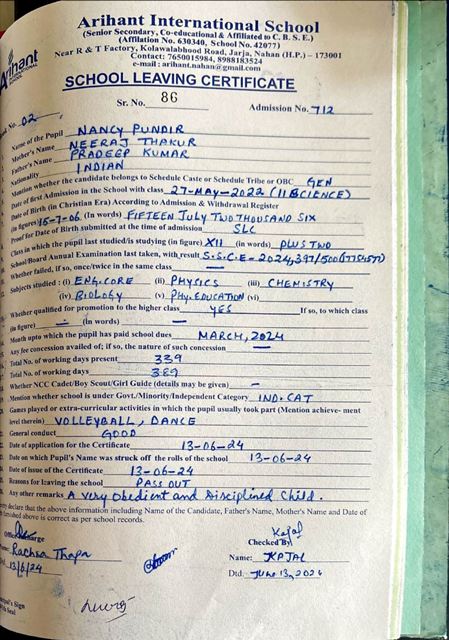 Arihant International School
(Senior Secondary, Co-educational & Affiliated to C. B. S. E.)
(Affilation No. 630340, School No. 42077)
Near R & T Factory, Kolawalabhood Road, Jarja, Nahan (H.P.) – 173001
Contact: 7650015984, 8988183524
e-mail : arihant.nahan@gmail.com
Arihant
SCHOOL LEAVING CERTIFICATE
Sr. No. 86
Admission No. 712
No. 02
Name of the Pupil NANCY PUNDIR
Mother's Name NEERAJ THAKUR
Father's Name PRADEEP KUMAR
Nationality INDIAN
Mention whether the candidate belongs to Schedule Caste or Schedule Tribe or OBC GEN
Date of first Admission in the School with class 27-MAY-2022 (11 SCIENCE)
Date of Birth (in Christian Era) According to Admission & Withdrawal Register
(in figures) 15-7-06 (In words) FIFTEEN JULY TWO THOUSAND SIX
Proof for Date of Birth submitted at the time of admission SLC
Class in which the pupil last studied/is studying (in figure) XII (in words) PLUS TWO
School/Board Annual Examination last taken, with result S.S.C.E - 2024, 397/500
Whether failed, if so, once/twice in the same class —
Subjects studied : (i) ENG. CORE (ii) PHYSICS (iii) CHEMISTRY
(iv) BIOLOGY (v) PHY. EDUCATION (vi)
Whether qualified for promotion to the higher class YES If so, to which class
(in figure) — (in words) —
Month upto which the pupil has paid school dues MARCH, 2024
Any fee concession availed of; if so, the nature of such concession —
Total No. of working days present 339
Total No. of working days 389
Whether NCC Cadet/Boy Scout/Girl Guide (details may be given) –
Mention whether school is under Govt./Minority/Independent Category IND. CAT
Games played or extra-curricular activities in which the pupil usually took part (Mention achieve- ment
level therein) VOLLEYBALL, DANCE
General conduct GOOD
Date of application for the Certificate 13-06-24
Date on which Pupil's Name was struck off the rolls of the school 13-06-24
Date of issue of the Certificate 13-06-24
Reasons for leaving the school PASS OUT
Any other remarks A very Obedient and Disciplined Child.
declare that the above information including Name of the Candidate, Father's Name, Mother's Name and Date of
furnished above is correct as per school records.
Kajal
Checked By
Rachna Thapa
Name: KAJAL
13/6/24
Dtd. JUNE 13, 2024